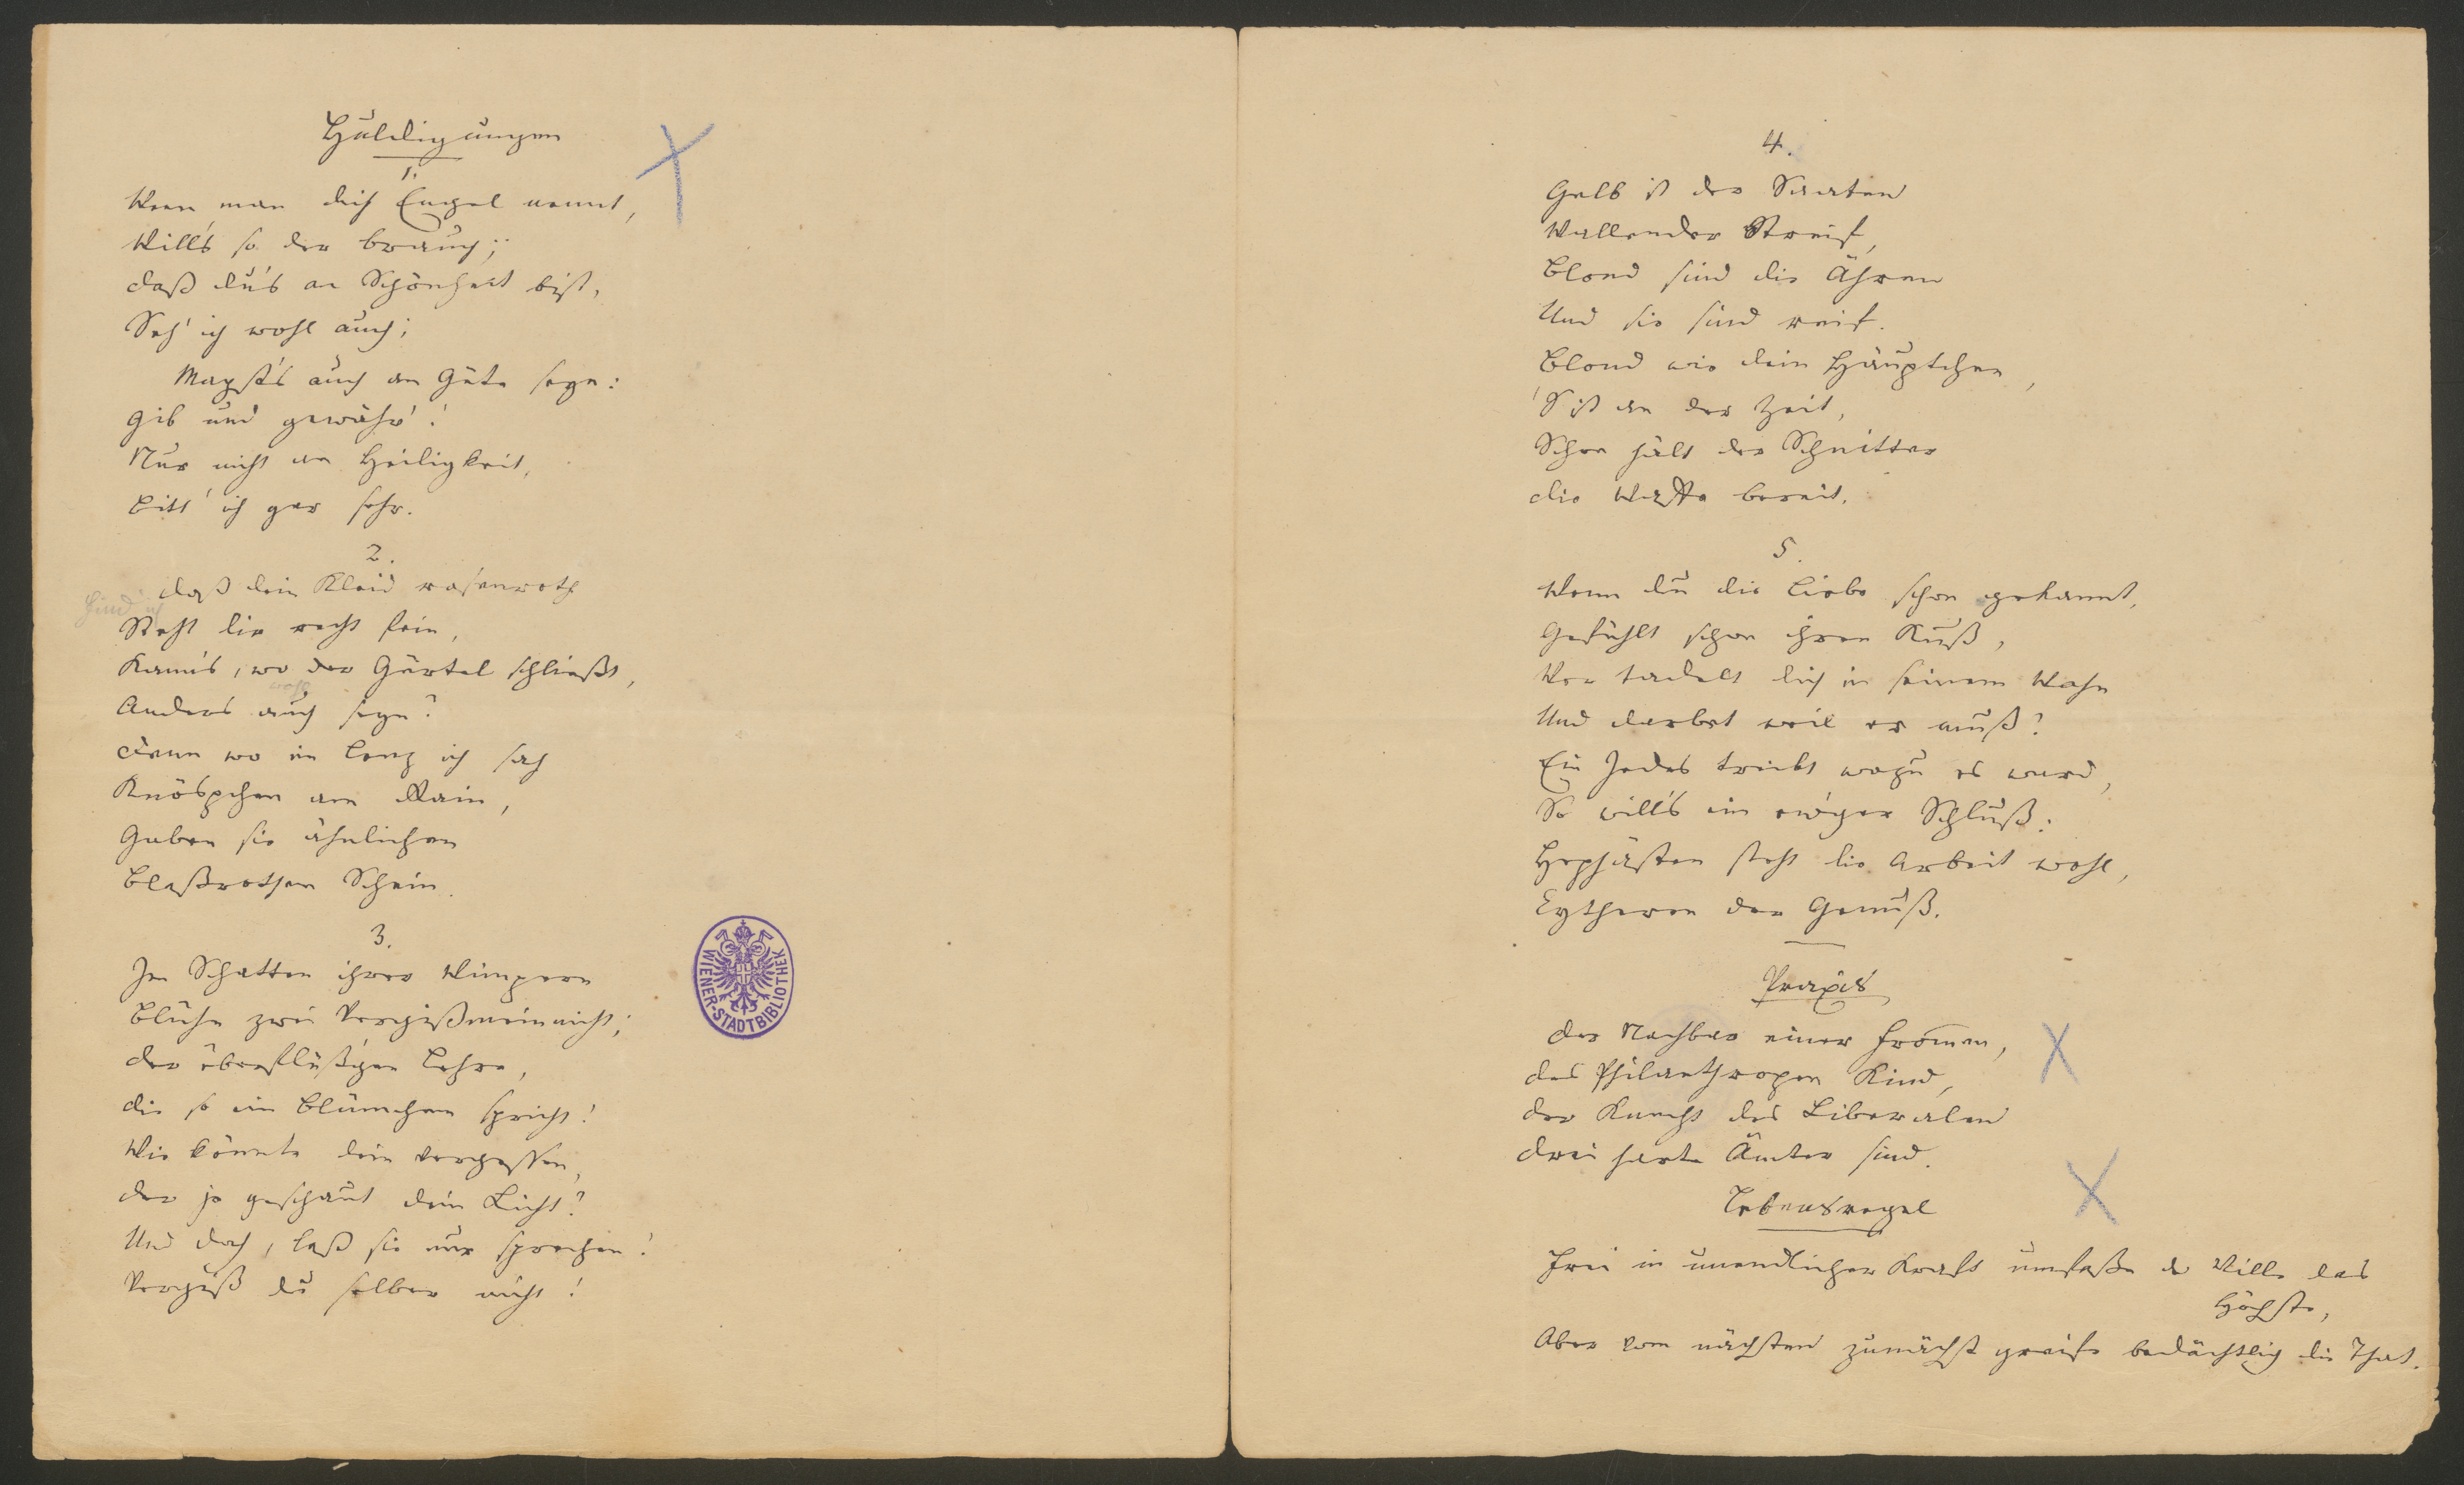 Huldigungen
1.
Wenn man dich Engel nennt,
Will's so der Brauch;
Daß du's an Schönheit bist,
Seh' ich wohl auch;
Magst's auch an Güte seyn:
Gib und gewähr'!
Nur nicht an Heiligkeit,
Bitt' ich gar sehr.
2.
Daß dein Kleid rosenroth
find' ich
Steht dir recht fein,
Kann's, wo der Gürtel schließt,
wohl
Anders auch seyn?
Denn wo im Lenz ich sah
Knöspchen am Rain,
Gaben sie ähnlichen
Blaßrothen Schein.
3.
Im Schatten ihrer Wimpern
Blühn zwei Vergißmeinnicht;
Der überflüß'gen Lehre,
Die so ein Blümchen spricht!
Wie könnte dein vergessen,
Der je geschaut dein Licht?
Und doch, laß sie nur sprechen!
Vergiß du selber nicht!
WIENER-STADTBIBLIOTHEK
4.
Gelb ist der Saaten
Wallender Streif,
Blond sind die Ähren
Und sie sind reif.
Blond wie dein Häuptchen,
'S ist an der Zeit,
Schon hält der Schnitter
Die Waffe bereit.
5.
Wenn du die Liebe schon gekannt,
Gefühlt schon ihren Kuß,
Wer tadelt dich in seinem Wahn
Und darbet weil er muß?
Ein Jedes treibt wozu es ward,
So will's ein ew'ger Schluß:
Hephästen steht die Arbeit wohl,
Cytheren der Genuß.
Praxis
Der Nachbar einer Frommen,
Des Philanthropen Kind,
Der Knecht des Liberalen
Drei harte Ämter sind.
Lebensregel
Frei in unendlicher Kraft umfaße der Wille das
Höchste,
Aber vom nächsten zunächst greife bedächtlich die That.